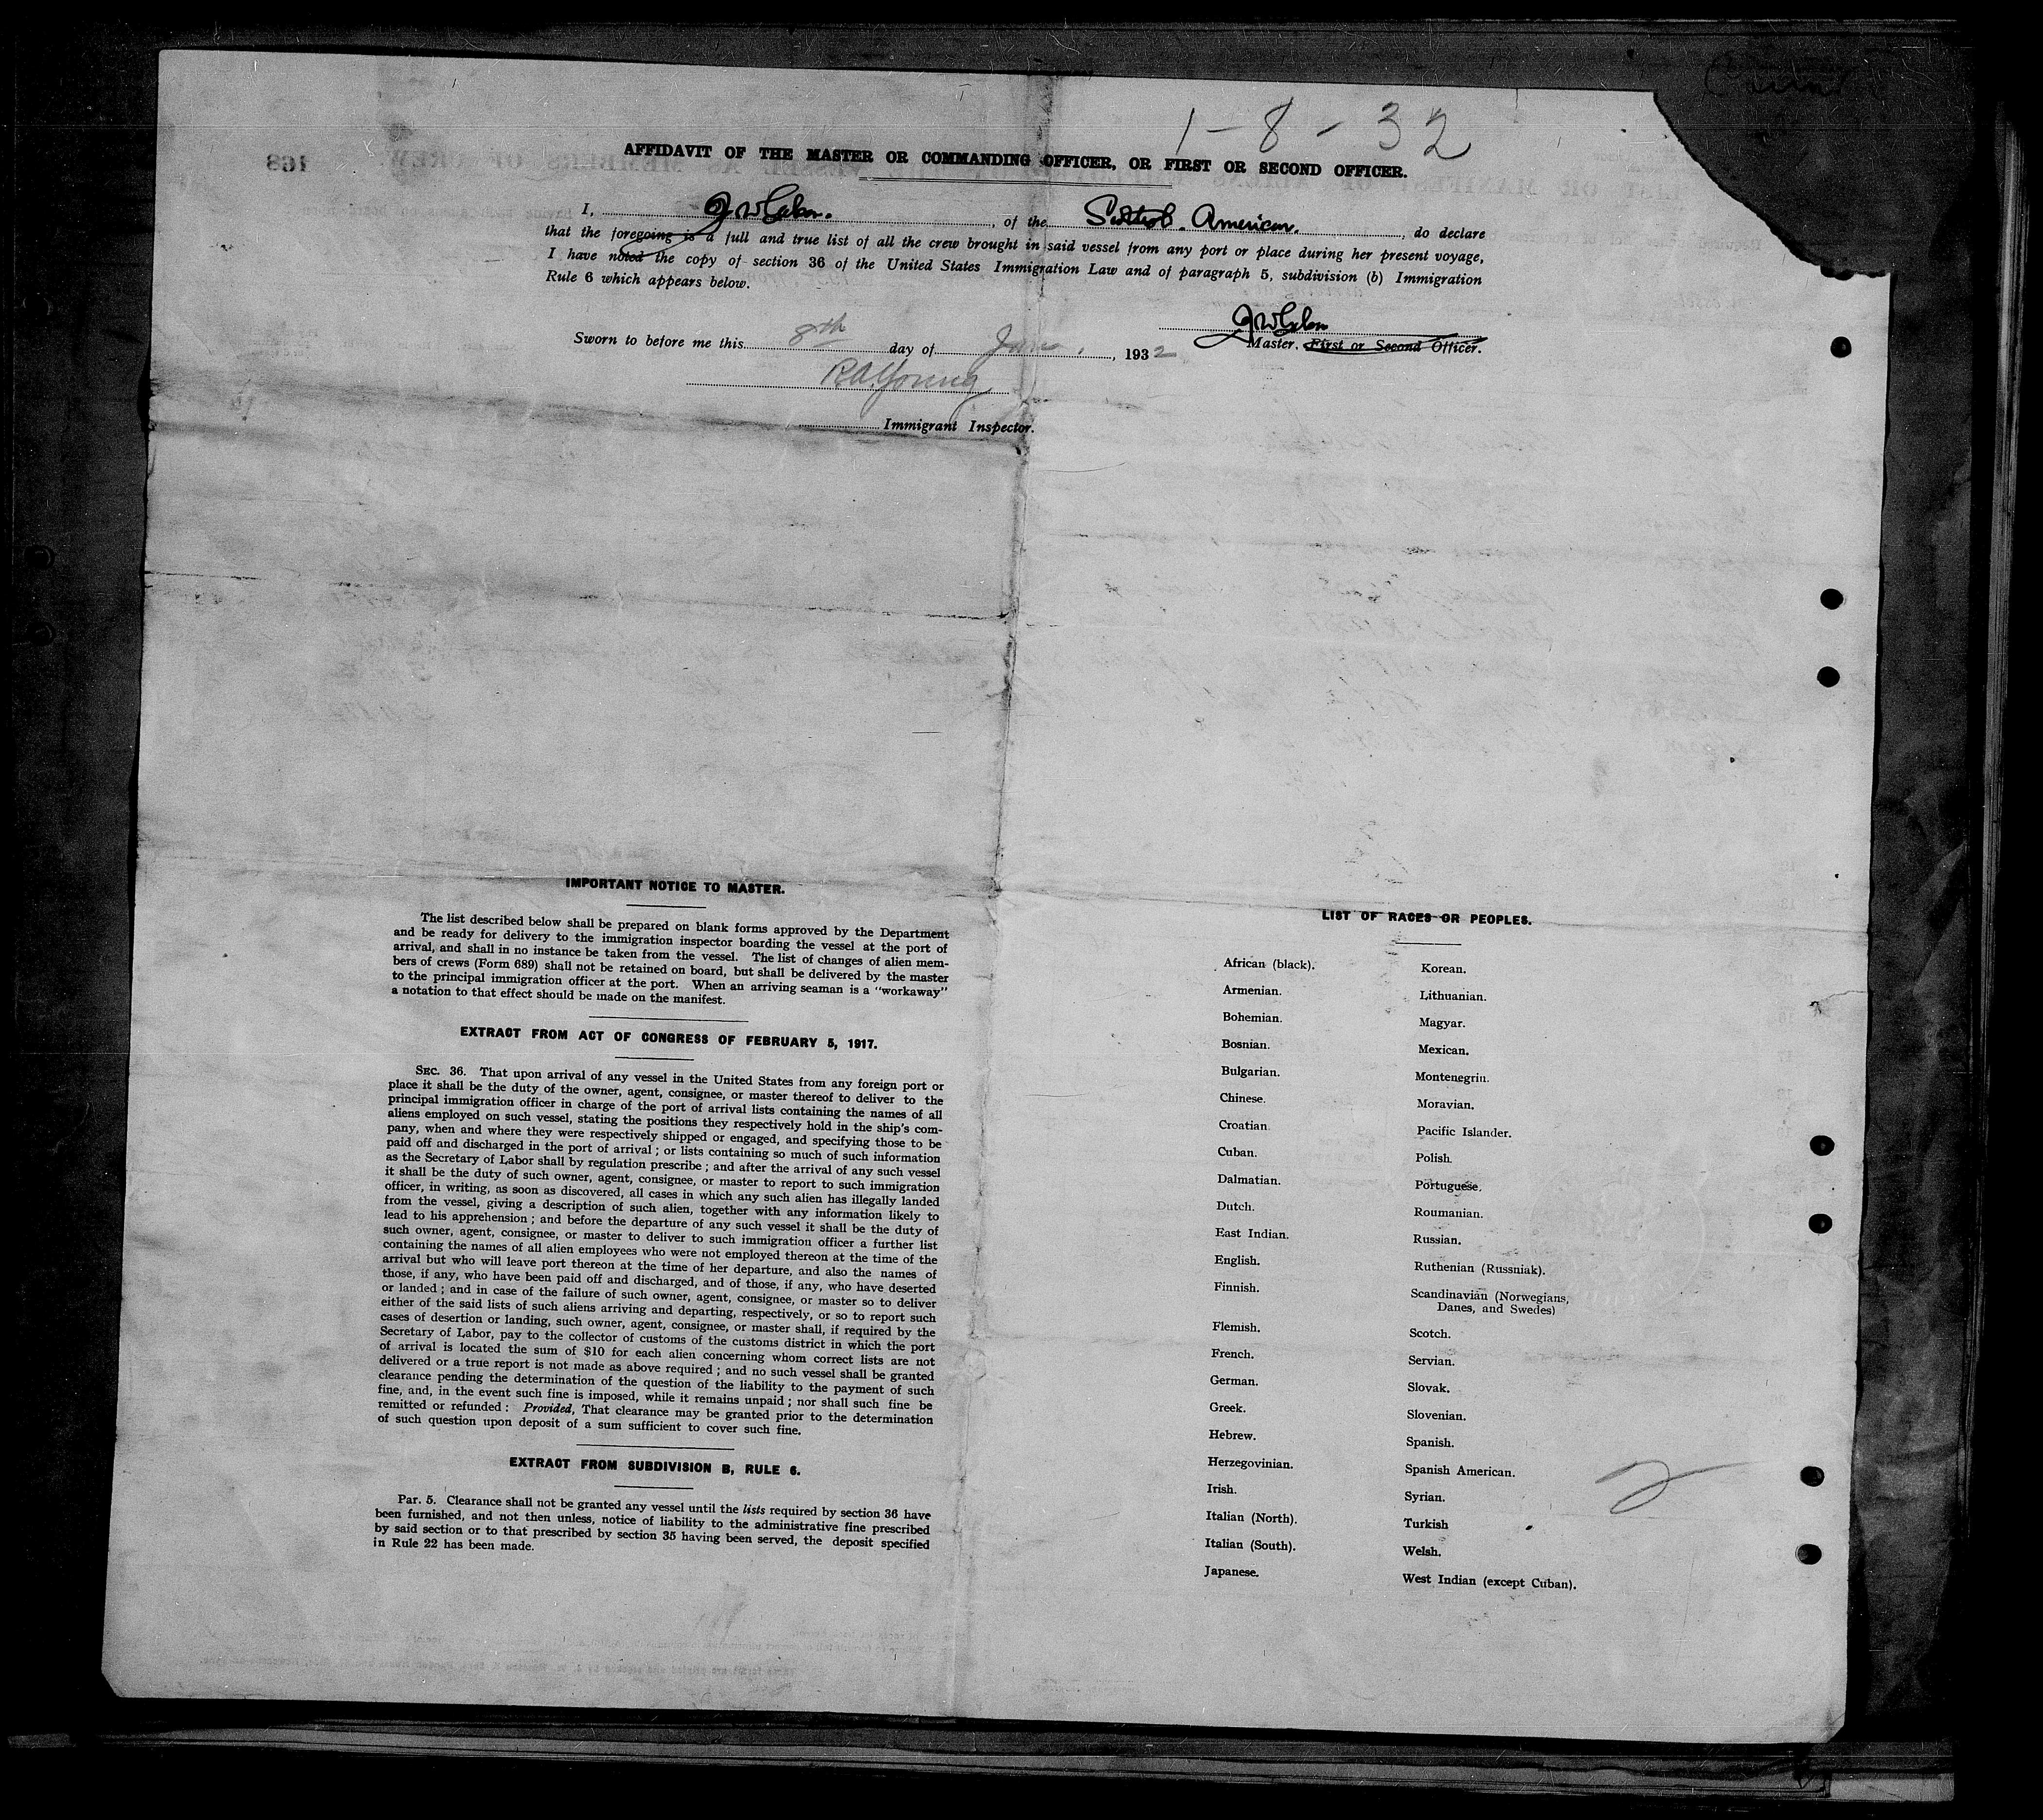 1-8-32
168
AFFIDAVIT OF THE MASTER OR COMMANDING OFFICER, OR FIRST OR SECOND OFFICER.
I, , of the American. , do declare
that the foregoing is a full and true list of all the crew brought in said vessel from any port or place during her present voyage,
I have noted the copy of section 36 of the United States Immigration Law and of paragraph 5, subdivision (b) Immigration
Rule 6 which appears below.
Master. First or Second Officer.
Sworn to before me this 8th day of Jan. , 1932
R A Young
Immigrant Inspector.
IMPORTANT NOTICE TO MASTER.
The list described below shall be prepared on blank forms approved by the Department
and be ready for delivery to the immigration inspector boarding the vessel at the port of
arrival, and shall in no instance be taken from the vessel. The list of changes of alien mem-
bers of crews (Form 689) shall not be retained on board, but shall be delivered by the master
to the principal immigration officer at the port. When an arriving seaman is a "workaway"
a notation to that effect should be made on the manifest.
EXTRACT FROM ACT OF CONGRESS OF FEBRUARY 5, 1917.
SEC. 36. That upon arrival of any vessel in the United States from any foreign port or
place it shall be the duty of the owner, agent, consignee, or master thereof to deliver to the
principal immigration officer in charge of the port of arrival lists containing the names of all
aliens employed on such vessel, stating the positions they respectively hold in the ship's com-
pany, when and where they were respectively shipped or engaged, and specifying those to be
paid off and discharged in the port of arrival; or lists containing so much of such information
as the Secretary of Labor shall by regulation prescribe; and after the arrival of any such vessel
it shall be the duty of such owner, agent, consignee, or master to report to such immigration
officer, in writing, as soon as discovered, all cases in which any such alien has illegally landed
from the vessel, giving a description of such alien, together with any information likely to
lead to his apprehension; and before the departure of any such vessel it shall be the duty of
such owner, agent, consignee, or master to deliver to such immigration officer a further list
containing the names of all alien employees who were not employed thereon at the time of the
arrival but who will leave port thereon at the time of her departure, and also the names of
those, if any, who have been paid off and discharged, and of those, if any, who have deserted
or landed; and in case of the failure of such owner, agent, consignee, or master so to deliver
either of the said lists of such aliens arriving and departing, respectively, or so to report such
cases of desertion or landing, such owner, agent, consignee, or master shall, if required by the
Secretary of Labor, pay to the collector of customs of the customs district in which the port
of arrival is located the sum of $10 for each alien concerning whom correct lists are not
delivered or a true report is not made as above required; and no such vessel shall be granted
clearance pending the determination of the question of the liability to the payment of such
fine, and, in the event such fine is imposed, while it remains unpaid; nor shall such fine be
remitted or refunded: Provided, That clearance may be granted prior to the determination
of such question upon deposit of a sum sufficient to cover such fine.
EXTRACT FROM SUBDIVISION B, RULE 6.
Par. 5. Clearance shall not be granted any vessel until the lists required by section 36 have
been furnished, and not then unless, notice of liability to the administrative fine prescribed
by said section or to that prescribed by section 35 having been served, the deposit specified
in Rule 22 has been made.
LIST OF RACES OR PEOPLES.
African (black).
Armenian.
Bohemian.
Bosnian.
Bulgarian.
Chinese.
Croatian.
Cuban.
Dalmatian.
Dutch.
East Indian.
English.
Finnish.
Flemish.
French.
German.
Greek.
Hebrew.
Herzegovinian.
Irish.
Italian (North).
Italian (South).
Japanese.
Korean.
Lithuanian.
Magyar.
Mexican.
Montenegrin.
Moravian.
Pacific Islander.
Polish.
Portuguese.
Roumanian.
Russian.
Ruthenian (Russniak).
Scandinavian (Norwegians,
Danes, and Swedes)
Scotch.
Servian.
Slovak.
Slovenian.
Spanish.
Spanish American.
Syrian.
Turkish
Welsh.
West Indian (except Cuban).
2